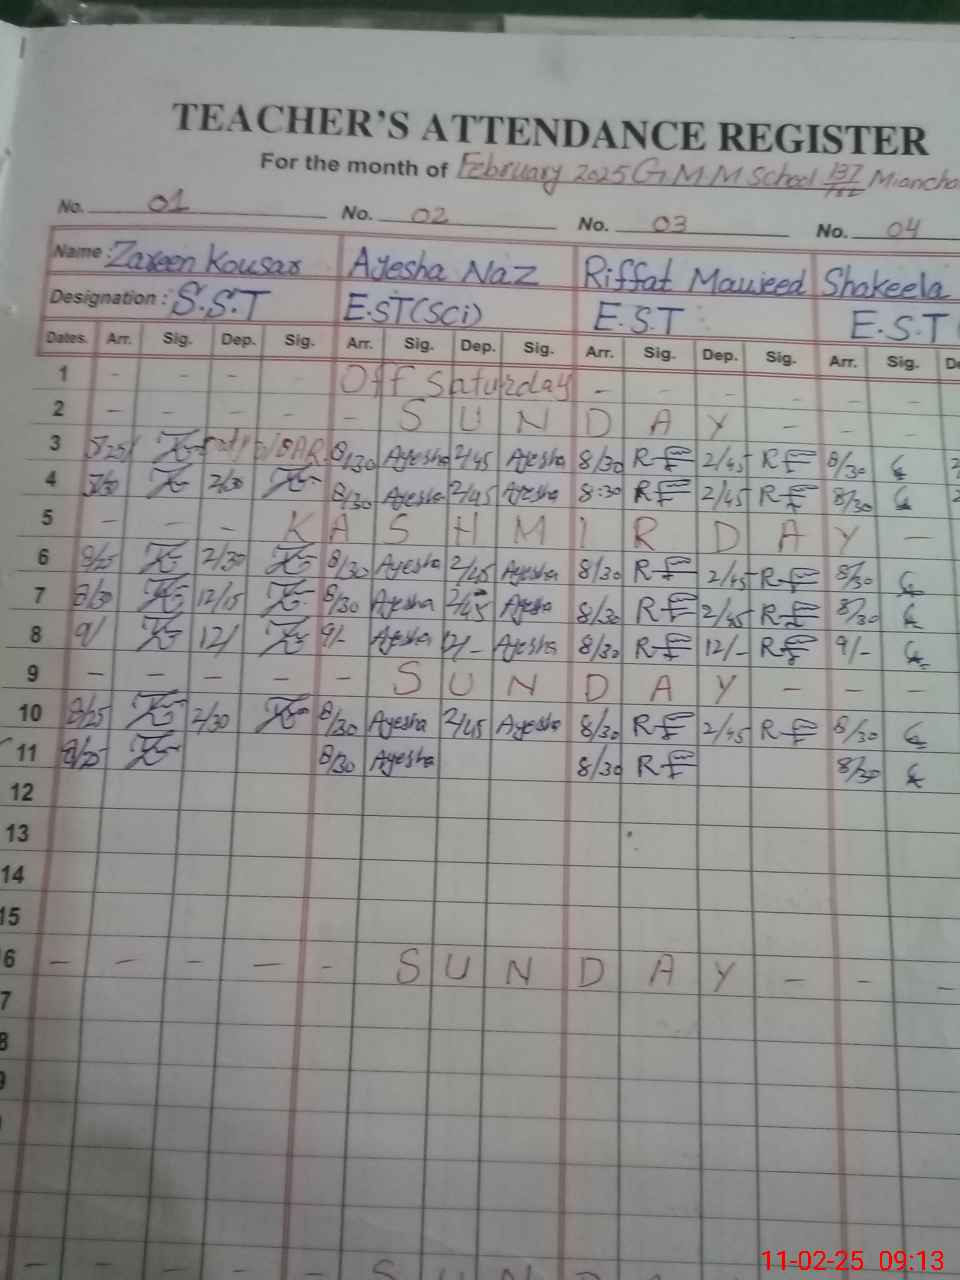 TEACHER'S ATTENDANCE REGISTER
For the month of February 2025 G M M School 137 Miancha
No. 01 No. 02 No. 03 No. 04
Name : Zareen Kousar Ayesha Naz Riffat Maweed Shakeela
Designation : S.S.T E.ST(SCi) E.S.T E.S.T
Dates. Arr. Sig. Dep. Sig. Arr. Sig. Dep. Sig. Arr. Sig. Dep. Sig. Arr. Sig. De
1 - - - - Off Saturday - - - - -
2 - - - - - S U N D A Y - - -
3 8/25 8/30 Ayesha 2/45 Ayesha 8/30 2/45 8/30
4 2/30 8/30 Ayesha 2/45 Ayesha 8:30 2/45 8/30
5 - - - K A S H M I R D A Y -
6 8/25 2/30 8/30 Ayesha 2/45 Ayesha 8/30 2/45 8/30
7 8/30 12/15 8/30 Ayesha 2/45 Ayesha 8/30 2/45 8/30
8 9/ 12/ 9/- Ayesha 12/- Ayesha 8/30 12/- 9/-
9 - - - - - S U N D A Y - - -
10 8/25 2/30 8/30 Ayesha 2/45 Ayesha 8/30 2/45 8/30
11 8/25 8/30 Ayesha 8/30 8/30
12
13
14
15
6 - - - - - S U N D A Y - - -
7
8
9
- - - - - S U N D
11-02-25 09:13